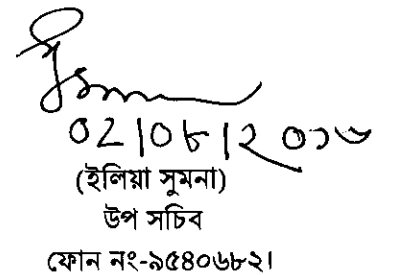 ০২/০৮/২০১৬
(ইলিয়া সুমনা)
উপ সচিব
ফোন নং-৯৫৪০৬৮২।